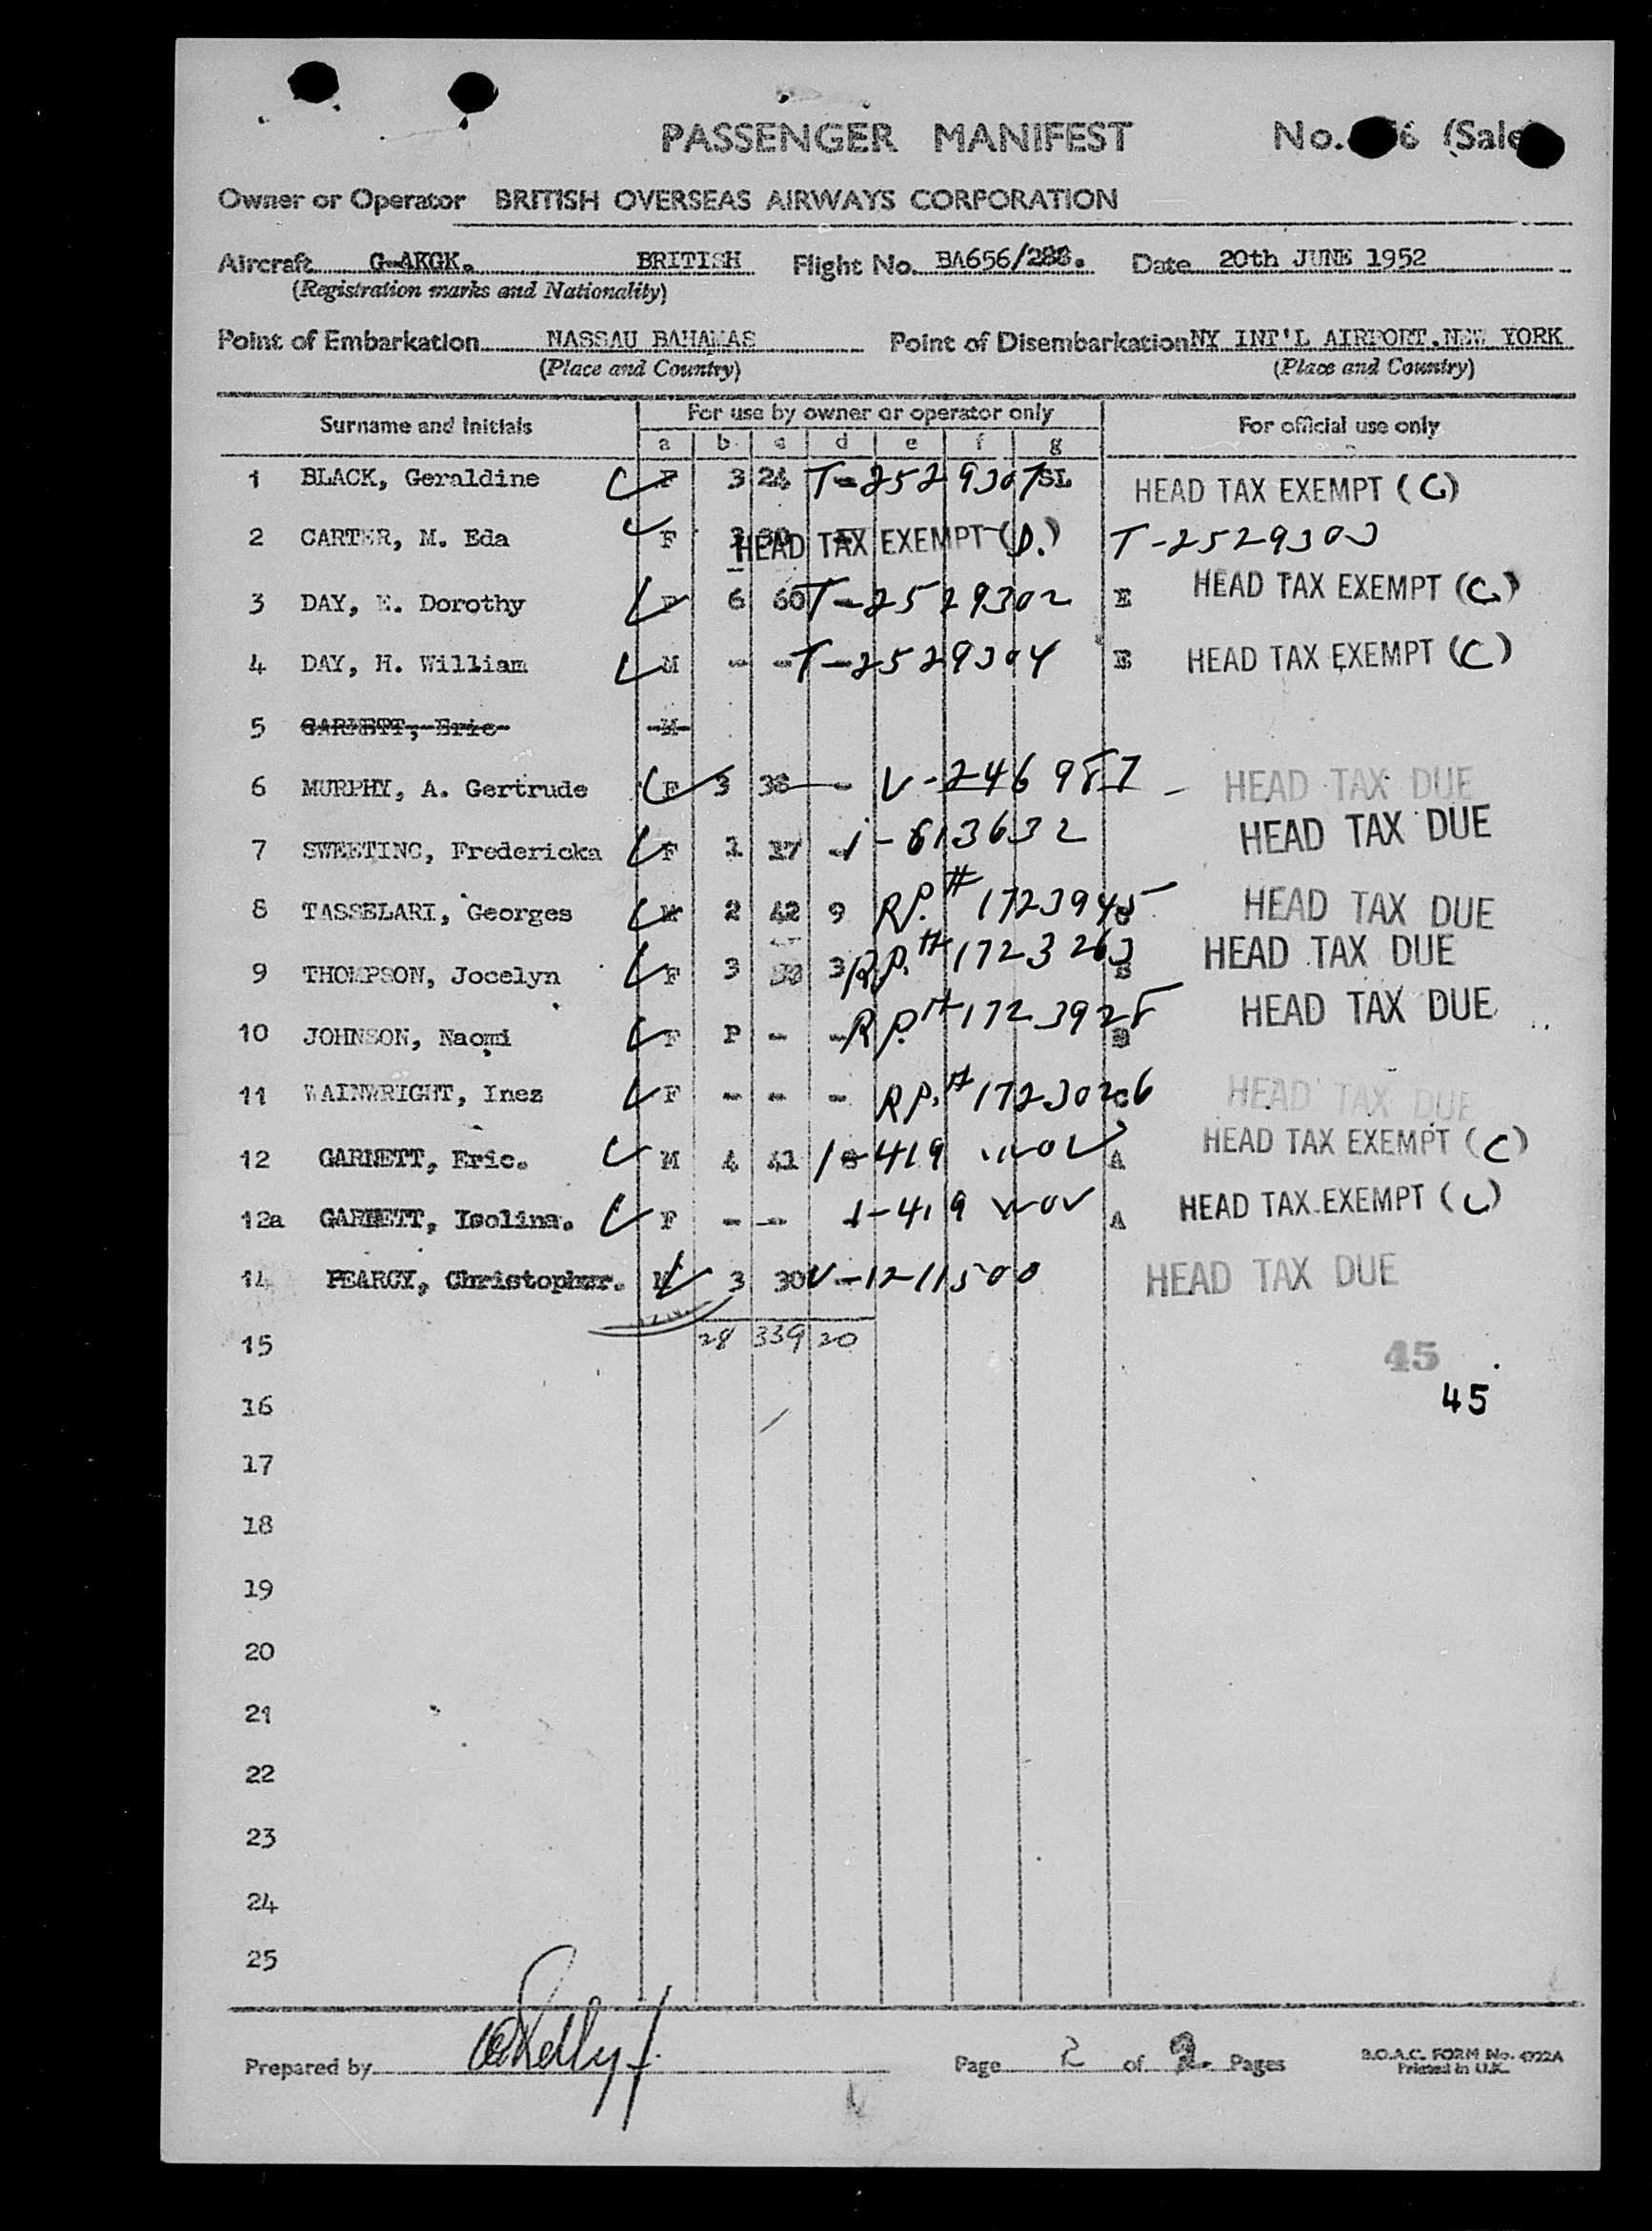 PASSENGER MANIFEST No. 6 (Sale
Owner or Operator BRITISH OVERSEAS AIRWAYS CORPORATION
Aircraft G-AKGK. BRITISH Flight No. BA656/288. Date 20th JUNE 1952
(Registration marks and Nationality)
Point of Embarkation NASSAU BAHAMAS Point of Disembarkation NY INT'L AIRPORT, NEW YORK
(Place and Country) (Place and Country)
Surname and Initials For use by owner or operator only For official use only
a b c d e f g
1 BLACK, Geraldine F 3 24 T-2529307 SL HEAD TAX EXEMPT (C)
2 CARTER, M. Eda F HEAD TAX EXEMPT (D.) T-2529303
3 DAY, E. Dorothy F 6 60 T-2529302 E HEAD TAX EXEMPT (C)
4 DAY, H. William M - - T-2529304 E HEAD TAX EXEMPT (C)
5 GARNETT, Eric M
6 MURPHY, A. Gertrude F 3 38 - V-246987 - HEAD TAX DUE
7 SWEETING, Fredericka F 1 17 - 1-613632 HEAD TAX DUE
8 TASSELARI, Georges M 2 42 9 RP.# 1723945 HEAD TAX DUE
9 THOMPSON, Jocelyn F 3 3 RP.# 1723263 HEAD TAX DUE
10 JOHNSON, Naomi F P - - RP.# 1723928 HEAD TAX DUE
11 WAINWRIGHT, Inez F - - - RP.# 1723026 HEAD TAX DUE
12 GARNETT, Eric. M 4 41 8 1-419 A HEAD TAX EXEMPT (C)
12a GARNETT, Isolina. F - - 1-419 A HEAD TAX EXEMPT (C)
14 PEARCY, Christopher. M 3 30 V-1211500 HEAD TAX DUE
15 28 339 20 45
16 45
17
18
19
20
21
22
23
24
25
Prepared by Page 2 of 2. Pages B.O.A.C. FORM No. 4722A
Printed in U.K.